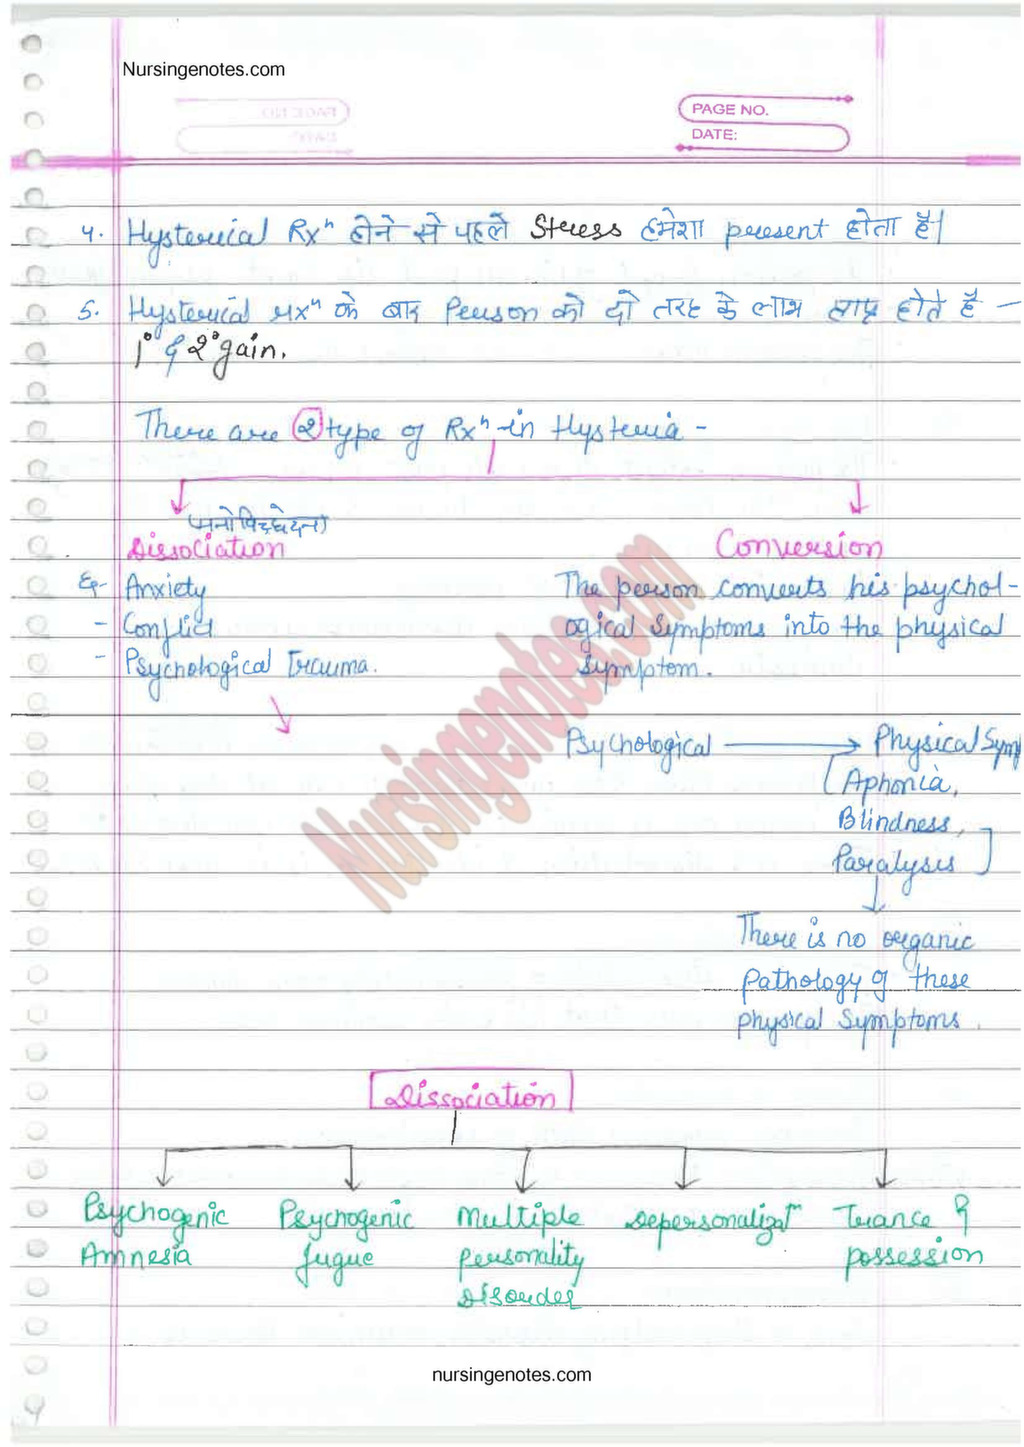 Nursingenotes.com
PAGE NO.
DATE:
4. Hysterical Rxⁿ होने से पहले Stress हमेशा present होता है।
5. Hysterical rxⁿ के बाद Person को दो तरह के लाभ प्राप्त होते है –
1° & 2° gain.
There are 2 type of Rxⁿ in Hysteria -
(मनोविच्छेदन)
Dissociation
Eg- Anxiety
- Conflict
- Psychological Trauma.
Conversion
The person converts his psychol-
ogical Symptoms into the physical
Symptom.
Psychological → Physical Symp
(Aphonia,
Blindness,
Paralysis]
There is no organic
Pathology of these
physical Symptoms.
Nursingenotes.com
Dissociation
Psychogenic Amnesia
Psychogenic fugue
Multiple personality Disorder
Depersonalizatⁿ
Trance & possession
nursingenotes.com